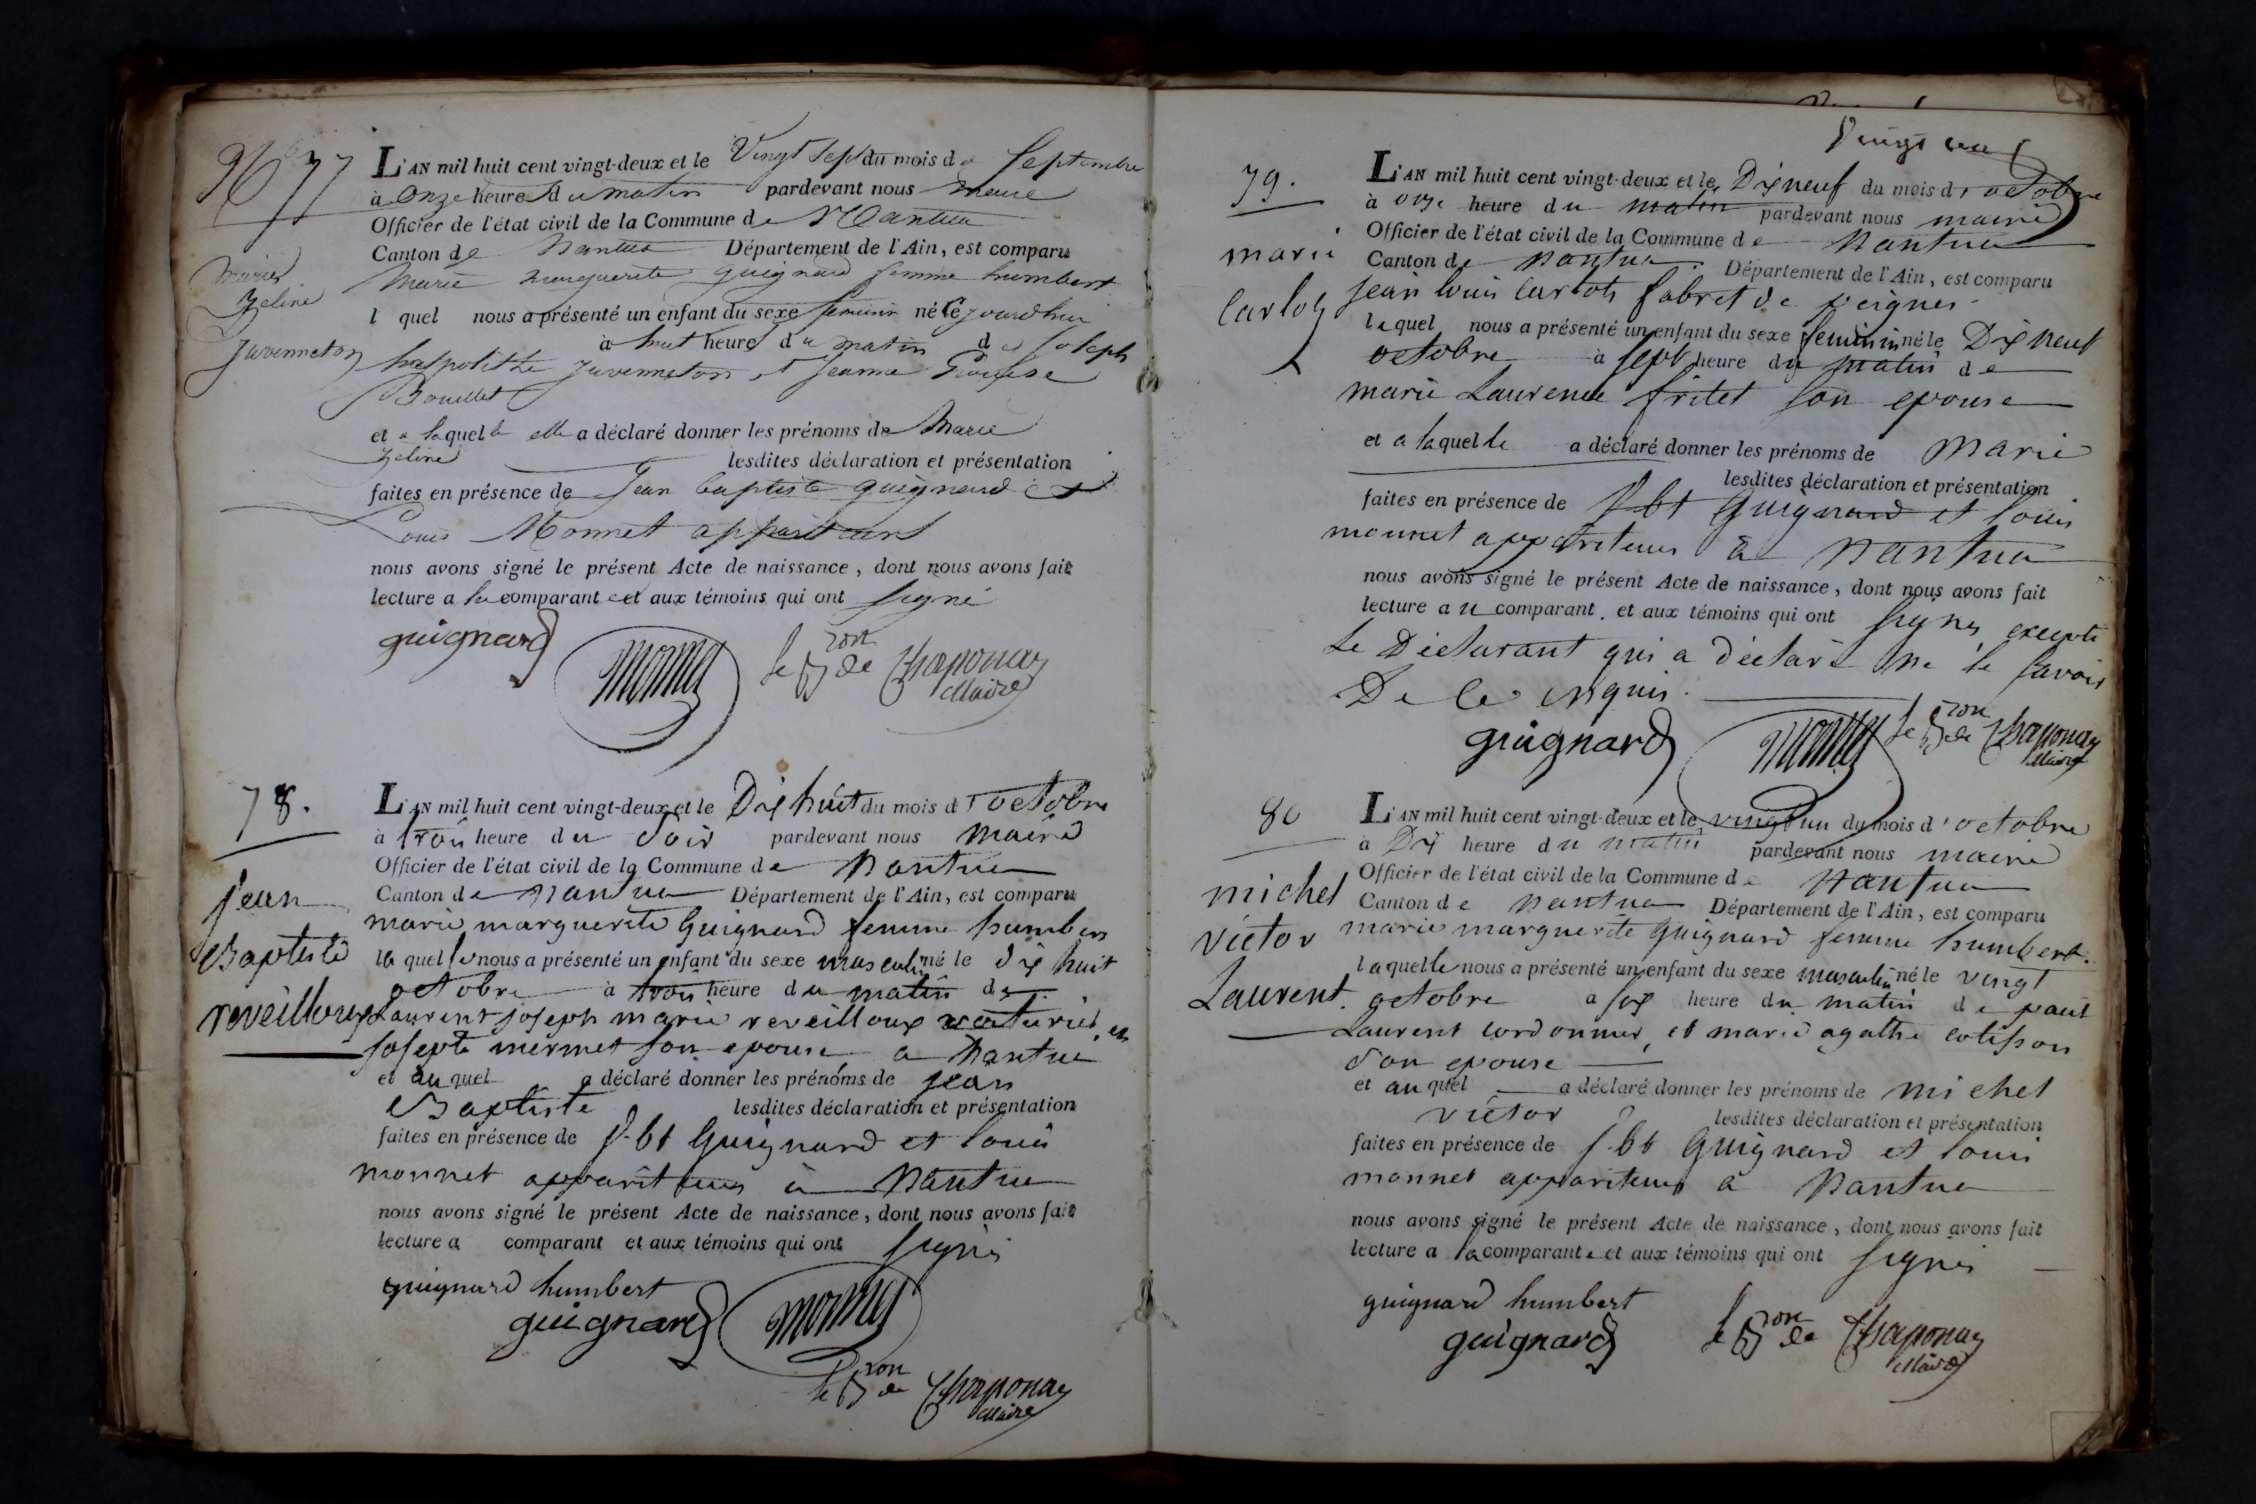 N° 77
Marie
Zeline
Juvenneton
L'AN mil huit cent vingt-deux et le Vingt sept du mois de Septembre
à Onze heures du matin pardevant nous maire
Officier de l'état civil de la Commune de Nantua
Canton de Nantua Département de l'Ain, est comparu
Marie marguerite guignard femme humbert
l quel nous a présenté un enfant du sexe feminin né Cejourdhui
à huit heures du matin de Joseph
hyppolithe Juvenneton et Jeanne
Bouillet
et a laquelle elle a déclaré donner les prénoms de Marie
Zeline lesdites déclaration et présentation
faites en présence de Jean baptiste guignard et
Louis Monnet appariteurs
nous avons signé le présent Acte de naissance, dont nous avons fait
lecture a la comparante et aux témoins qui ont signé
guignard monnet le Bon de Chaponay
Maire
78.
jean
Baptiste
reveilloux
L'AN mil huit cent vingt-deux et le Dix huit du mois d'octobre
à trois heure du soir pardevant nous maire
Officier de l'état civil de la Commune de Nantua
Canton de Nantua Département de l'Ain, est comparu
marie marguerite Guignard femme humbert
laquelle nous a présenté un enfant du sexe masculin né le dix huit
octobre à trois heure du matin de
Laurent joseph marie reveilloux voiturier, et
josepte mermet son epouse, a Nantua
et auquel a déclaré donner les prénoms de jean
Baptiste lesdites déclaration et présentation
faites en présence de J. bt Guignard et louis
monnet appariteurs à Nantua
nous avons signé le présent Acte de naissance, dont nous avons fait
lecture a comparant et aux témoins qui ont signés
guignard humbert
guignard monnet
le Bon de Chaponay
Maire
Vingt neuf
79.
marie
Carlots
L'AN mil huit cent vingt-deux et le Dix neuf du mois d'octobre
à onze heure du matin pardevant nous maire
Officier de l'état civil de la Commune de Nantua
Canton de Nantua Département de l'Ain, est comparu
jean louis Carlots fabret de peignes
lequel nous a présenté un enfant du sexe feminin né le Dix neuf
octobre à sept heure du matin de
marie Laurence fritet son epouse
et a laquelle a déclaré donner les prénoms de Marie
lesdites déclaration et présentation
faites en présence de J. bt Guignard et louis
monnet appariteurs à Nantua
nous avons signé le présent Acte de naissance, dont nous avons fait
lecture au comparant. et aux témoins qui ont signés excepté
Le Déclarant qui a déclaré ne le savoir
De ce enquis.
guignard monnet le Bon de Chaponay
Maire
80
michel
victor
Laurent.
L'AN mil huit cent vingt-deux et le vingt un du mois d'octobre
à Dix heure du matin pardevant nous maire
Officier de l'état civil de la Commune de Nantua
Canton de Nantua Département de l'Ain, est comparu
marie marguerite guignard femme humbert.
laquelle nous a présenté un enfant du sexe masculin né le vingt
octobre a six heure du matin de paul
Laurent cordonnier, et marie agathe cotisson
son epouse
et auquel a déclaré donner les prénoms de michel
victor lesdites déclaration et présentation
faites en présence de J. bt Guignard et louis
monnet appariteurs à Nantua
nous avons signé le présent Acte de naissance, dont nous avons fait
lecture a la comparante et aux témoins qui ont signés
guignard humbert
guignard le Bon de Chaponay
Maire